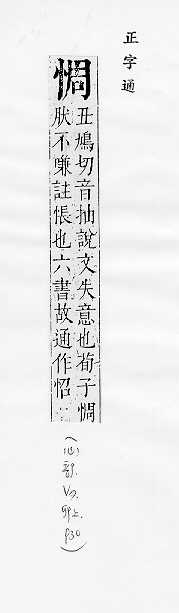 正字通
惆
丑鳩切音抽說文失意也荀子惆
肰不嗛註悵也六書故通作怊
(心部.
V7.
卯上.
P30)